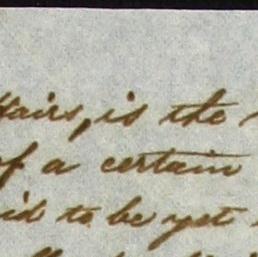 ffairs, is the
of a certain
id to be yet